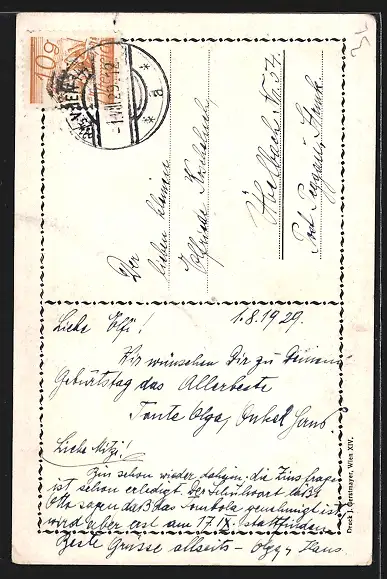 10g
Der
lieben kleinen
Elfriede
Übelbach Nr. 54.
Post Peggau, Steierm.
1.8.1929.
Liebe Elfi!
Wir wünschen Dir zu Deinem
Geburtstag das Allerbeste
Tante Olga, Onkel Hans.
Liebe Mitzi!
Bin schon wieder daheim. die Zinsfrage
ist schon erledigt. Der Schulwart läßt
Otto sagen daß das Tombola genehmigt ist
wird aber erst am 17.IX. stattfinden
Beste Grüsse allseits – Olga, Hans.
Druck J. Gerstmayer, Wien XIV.